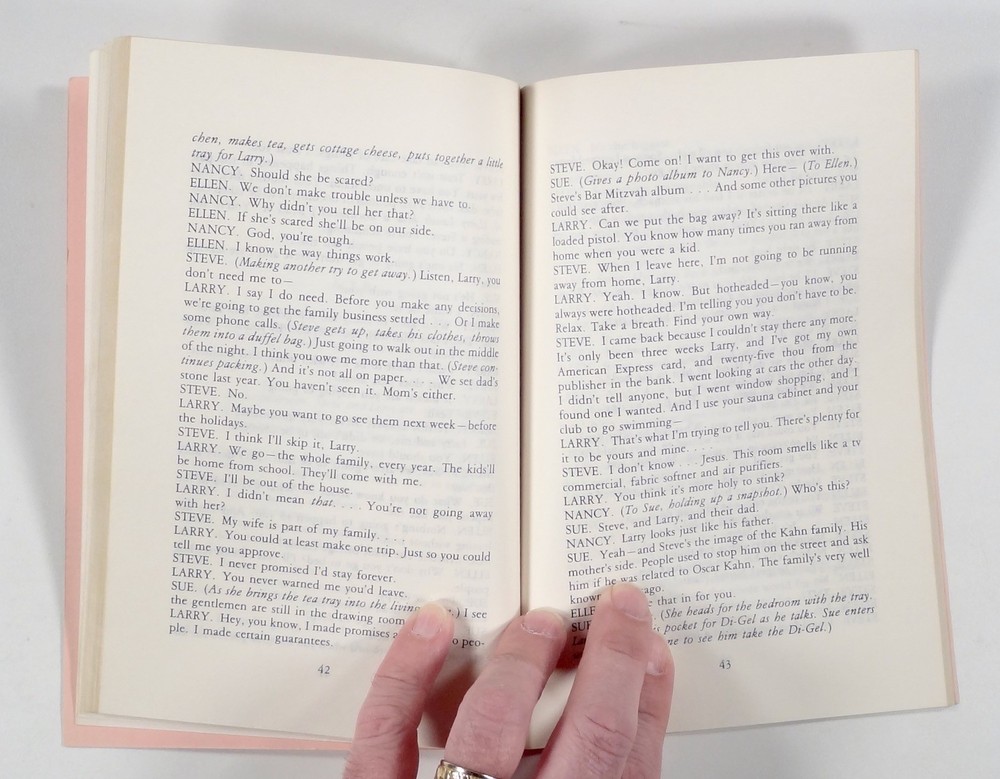 chen, makes tea, gets cottage cheese, puts together a little
tray for Larry.)
NANCY. Should she be scared?
ELLEN. We don't make trouble unless we have to.
NANCY. Why didn't you tell her that?
ELLEN. If she's scared she'll be on our side.
NANCY. God, you're tough.
ELLEN. I know the way things work.
STEVE. (Making another try to get away.) Listen, Larry, you
don't need me to—
LARRY. I say I do need. Before you make any decisions,
we're going to get the family business settled . . . Or I make
some phone calls. (Steve gets up, takes his clothes, throws
them into a duffel bag.) Just going to walk out in the middle
of the night. I think you owe me more than that. (Steve con-
tinues packing.) And it's not all on paper. . . . We set dad's
stone last year. You haven't seen it. Mom's either.
STEVE. No.
LARRY. Maybe you want to go see them next week—before
the holidays.
STEVE. I think I'll skip it, Larry.
LARRY. We go—the whole family, every year. The kids'll
be home from school. They'll come with me.
STEVE. I'll be out of the house.
LARRY. I didn't mean that. . . . You're not going away
with her?
STEVE. My wife is part of my family. . . .
LARRY. You could at least make one trip. Just so you could
tell me you approve.
STEVE. I never promised I'd stay forever.
LARRY. You never warned me you'd leave.
SUE. (As she brings the tea tray into the living .) I see
the gentlemen are still in the drawing room
LARRY. Hey, you know, I made promises peo-
ple. I made certain guarantees.
42
STEVE. Okay! Come on! I want to get this over with.
SUE. (Gives a photo album to Nancy.) Here— (To Ellen.)
Steve's Bar Mitzvah album . . . And some other pictures you
could see after.
LARRY. Can we put the bag away? It's sitting there like a
loaded pistol. You know how many times you ran away from
home when you were a kid.
STEVE. When I leave here, I'm not going to be running
away from home, Larry.
LARRY. Yeah. I know. But hotheaded—you know, you
always were hotheaded. I'm telling you you don't have to be.
Relax. Take a breath. Find your own way.
STEVE. I came back because I couldn't stay there any more.
It's only been three weeks Larry, and I've got my own
American Express card, and twenty-five thou from the
publisher in the bank. I went looking at cars the other day.
I didn't tell anyone, but I went window shopping, and I
found one I wanted. And I use your sauna cabinet and your
club to go swimming—
LARRY. That's what I'm trying to tell you. There's plenty for
it to be yours and mine. . . .
STEVE. I don't know . . . Jesus. This room smells like a tv
commercial, fabric softner and air purifiers.
LARRY. You think it's more holy to stink?
NANCY. (To Sue, holding up a snapshot.) Who's this?
SUE. Steve, and Larry, and their dad.
NANCY. Larry looks just like his father.
SUE. Yeah—and Steve's the image of the Kahn family. His
mother's side. People used to stop him on the street and ask
him if he was related to Oscar Kahn. The family's very well
known ago.
that in for you.
SUE (She heads for the bedroom with the tray.
pocket for Di-Gel as he talks. Sue enters
to see him take the Di-Gel.)
43